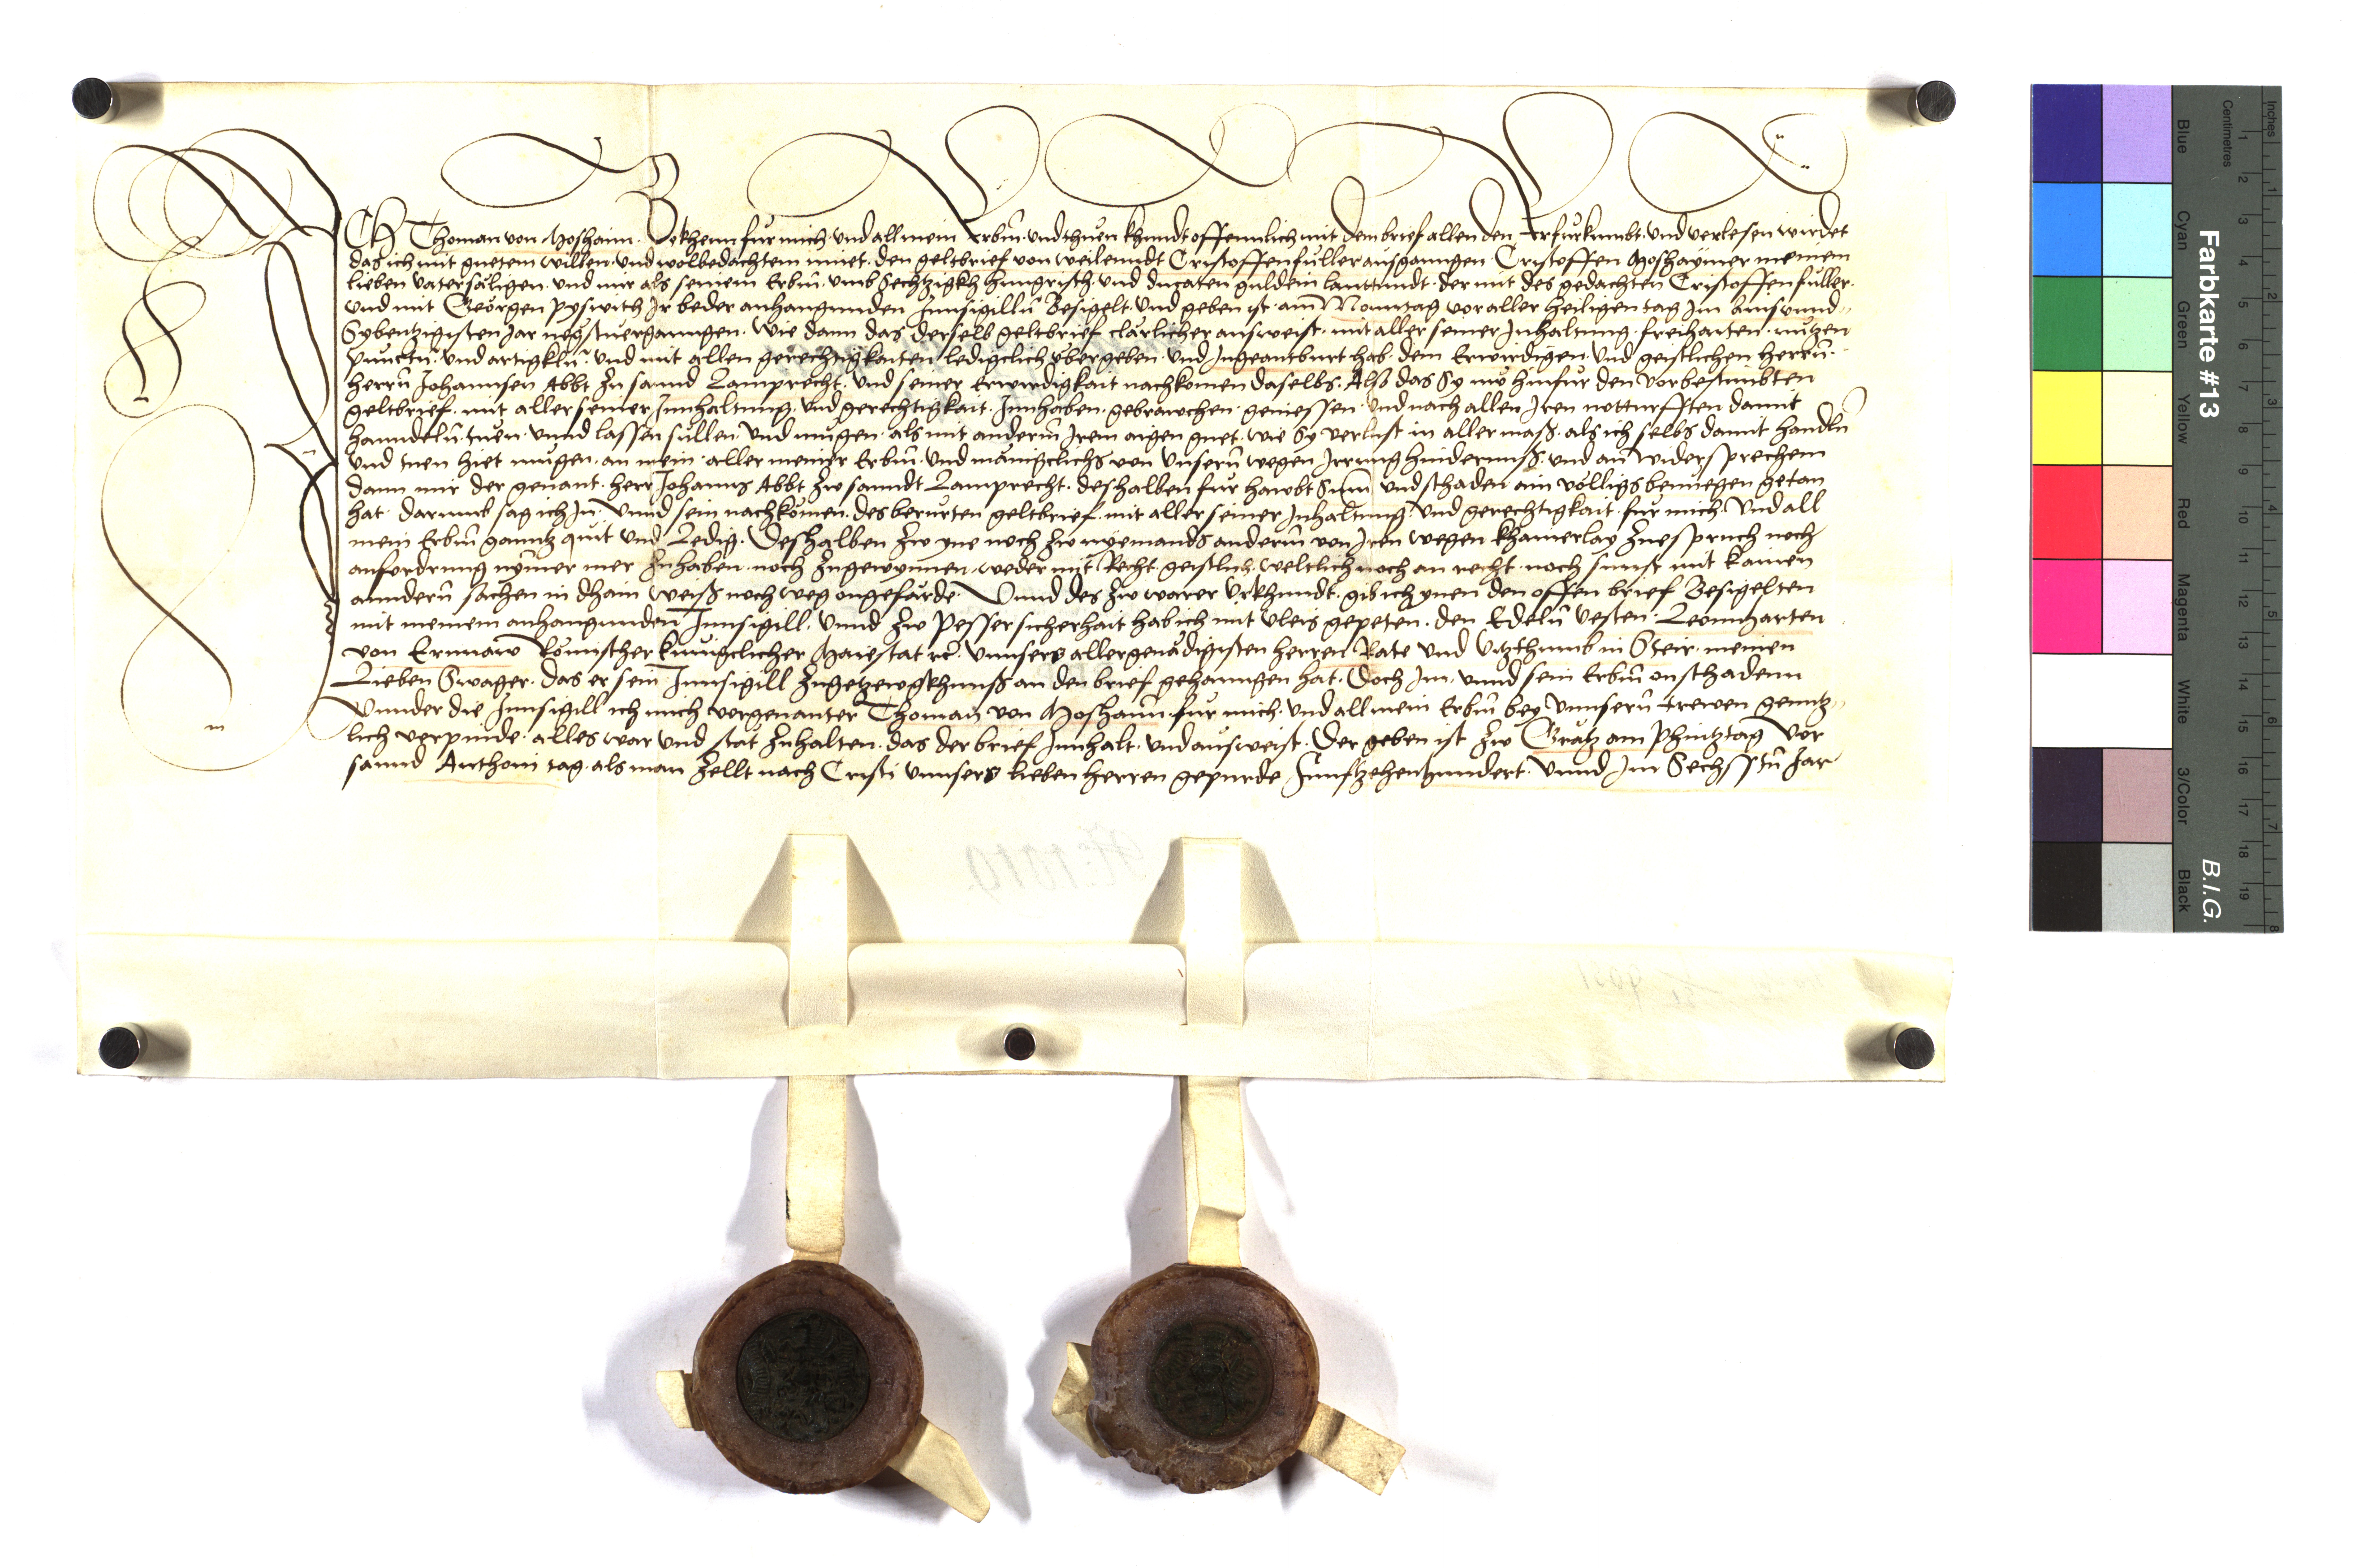 ICH Thoman von Moshaim. Bekhenn fur mich. und all mein Erbm̄. und thuen khundt offennlich mit dem brief allen den Er furkumbt. und verlesen wirdet
das ich mit guetem willen. und wolbedachtem muet. den geltbrief von weilenndt Cristoffen fuller ausganngen. Cristoffen Moshaymer meinem
lieben vatersäligen. und mir als seinem Erbm̄. umb Sechtzigkh hungrisch. und ducaten guldein lauttundt. der mit des gedachten Cristoffen fuller.
und mit Geörgen pyswich Ir beder anhangunden Innsigillū Besigelt. und geben ist am Monntag vor aller heiligen tag Im Ainsunnd
Sybentzigisten Jar negstuergangen. Wie dann das derselb geltbrief clärlicher ausweist. mit aller seiner Inhaltung. freihaiten. nützen
punctn̄. und artigkln̄. und mit allen gerechtigkaiten. ledigclich ubergeben. und Ingeantburt hab. dem Erwirdigen. und geistlichen herrn̄.
herrn̄ Johannsen Abbt zu sannd Lamprecht. und seiner Erwirdigkait nachkomen daselbs. Also das Sy nw hinfur den vorbestimbten
geltbrief. mit aller seiner Innhaltung. und gerechtigkait. Innhaben. gebrawchen. geniessen. und nach allen Iren notturfften damit
hanndeln̄. tuen. unnd lassen sullen. und mugen. als mit anderm̄ Irem aigen guet. wie Sy verlust in aller mass. als ich selbs damit handln̄
und tuen hiet mugen. an mein. aller meiner Erbm̄. und mänigclichs von unsern̄ wegen Irrung hindernuss. und an widersprechenn
dann mir der genant. herr Johanns Abbt zw sanndt Lamprecht. deshalben fur hawbt Sum̄ und schaden ain völligs benuegen getan
hat. darumb sag ich In. unnd sein nachkömen. des berurten geltbrief. mit aller seiner Inhaltung. und gerechtigkait. fur mich. und all
mein Erbm̄ ganntz quit und Ledig. Deshalben zw yne noch zw nyemands anderm̄ von Iren wegen khainerlay zuespruch noch
anfordrung nymer mer zuhaben. noch zugewynnen. weder mit Recht. geistlich. weltlich noch an recht. noch sunst mit kainen
anndern̄ sachen in dhain weiss noch weg ongefärde. Unnd des zw warer Urkhundt. gib ich ynen den offen brief Besigelten
mit meinem anhangunden Innsigill. Unnd zw pesser sicherhait hab ich mit vleis gepeten. den Edeln̄ vesten. Leonnharten
von Ernnaw Römischer kunigclicher Maiestat rc̄. unnsers allergenädigisten herren Rate und Vitzthumb in Steir. meinen
Lieben Swager. das er sein Innsigill zugetzewgkhnuss an den brief gehanngen hat. Doch Im. unnd sein Erbm̄ on schadenn
Unnder die Innsigill ich mich vorgenanter Thoman von Moshaim. fur mich. und all mein Erbm̄ bey unnsern̄ trewen genntz
lich verpinde. alles war und stät zuhalten. das der brief Innhalt. und ausweist. Der geben ist zw Grätz am Phintztag vor
sannd Anthoni tag. als man zellt nach Cristi unnsers lieben herren gepurde. Funftzehenhundert. unnd Im Sechsstn̄ Jar
Farbkarte #13
B.I.G.
Inches
Centimetres
1 2 3 4 5 6 7 8 9 10 11 12 13 14 15 16 17 18 19
1 2 3 4 5 6 7 8
Blue
Cyan
Green
Yellow
Red
Magenta
White
3/Color
Black